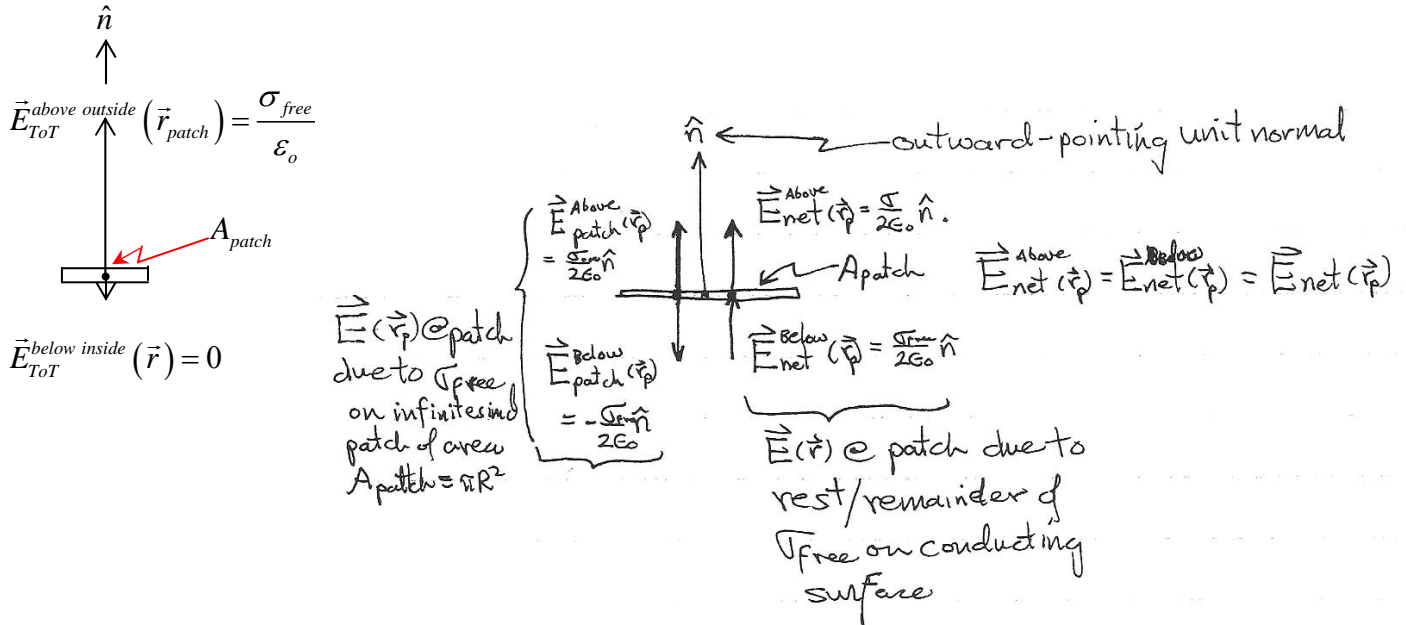 n̂
E⃗_ToT^above outside (r⃗_patch) = σ_free / ε_o
A_patch
E⃗_ToT^below inside (r⃗) = 0
n̂ ← outward-pointing unit normal
E⃗_patch^Above (r⃗_p)
= σ_free / 2ε_o n̂
E⃗_net^Above (r⃗_p) = σ / 2ε_o n̂.
A patch
E⃗_net^Above (r⃗_p) = E⃗_net^Below (r⃗_p) = E⃗_net (r⃗_p)
E⃗(r⃗_p) @ patch
due to σ_free
on infinitesimal
patch of area
A_patch = πR²
E⃗_patch^Below (r⃗_p)
= - σ_free / 2ε_o n̂
E⃗_net^Below (r⃗_p) = σ_free / 2ε_o n̂
E⃗(r⃗) @ patch due to
rest/remainder of
σ_free on conducting
surface